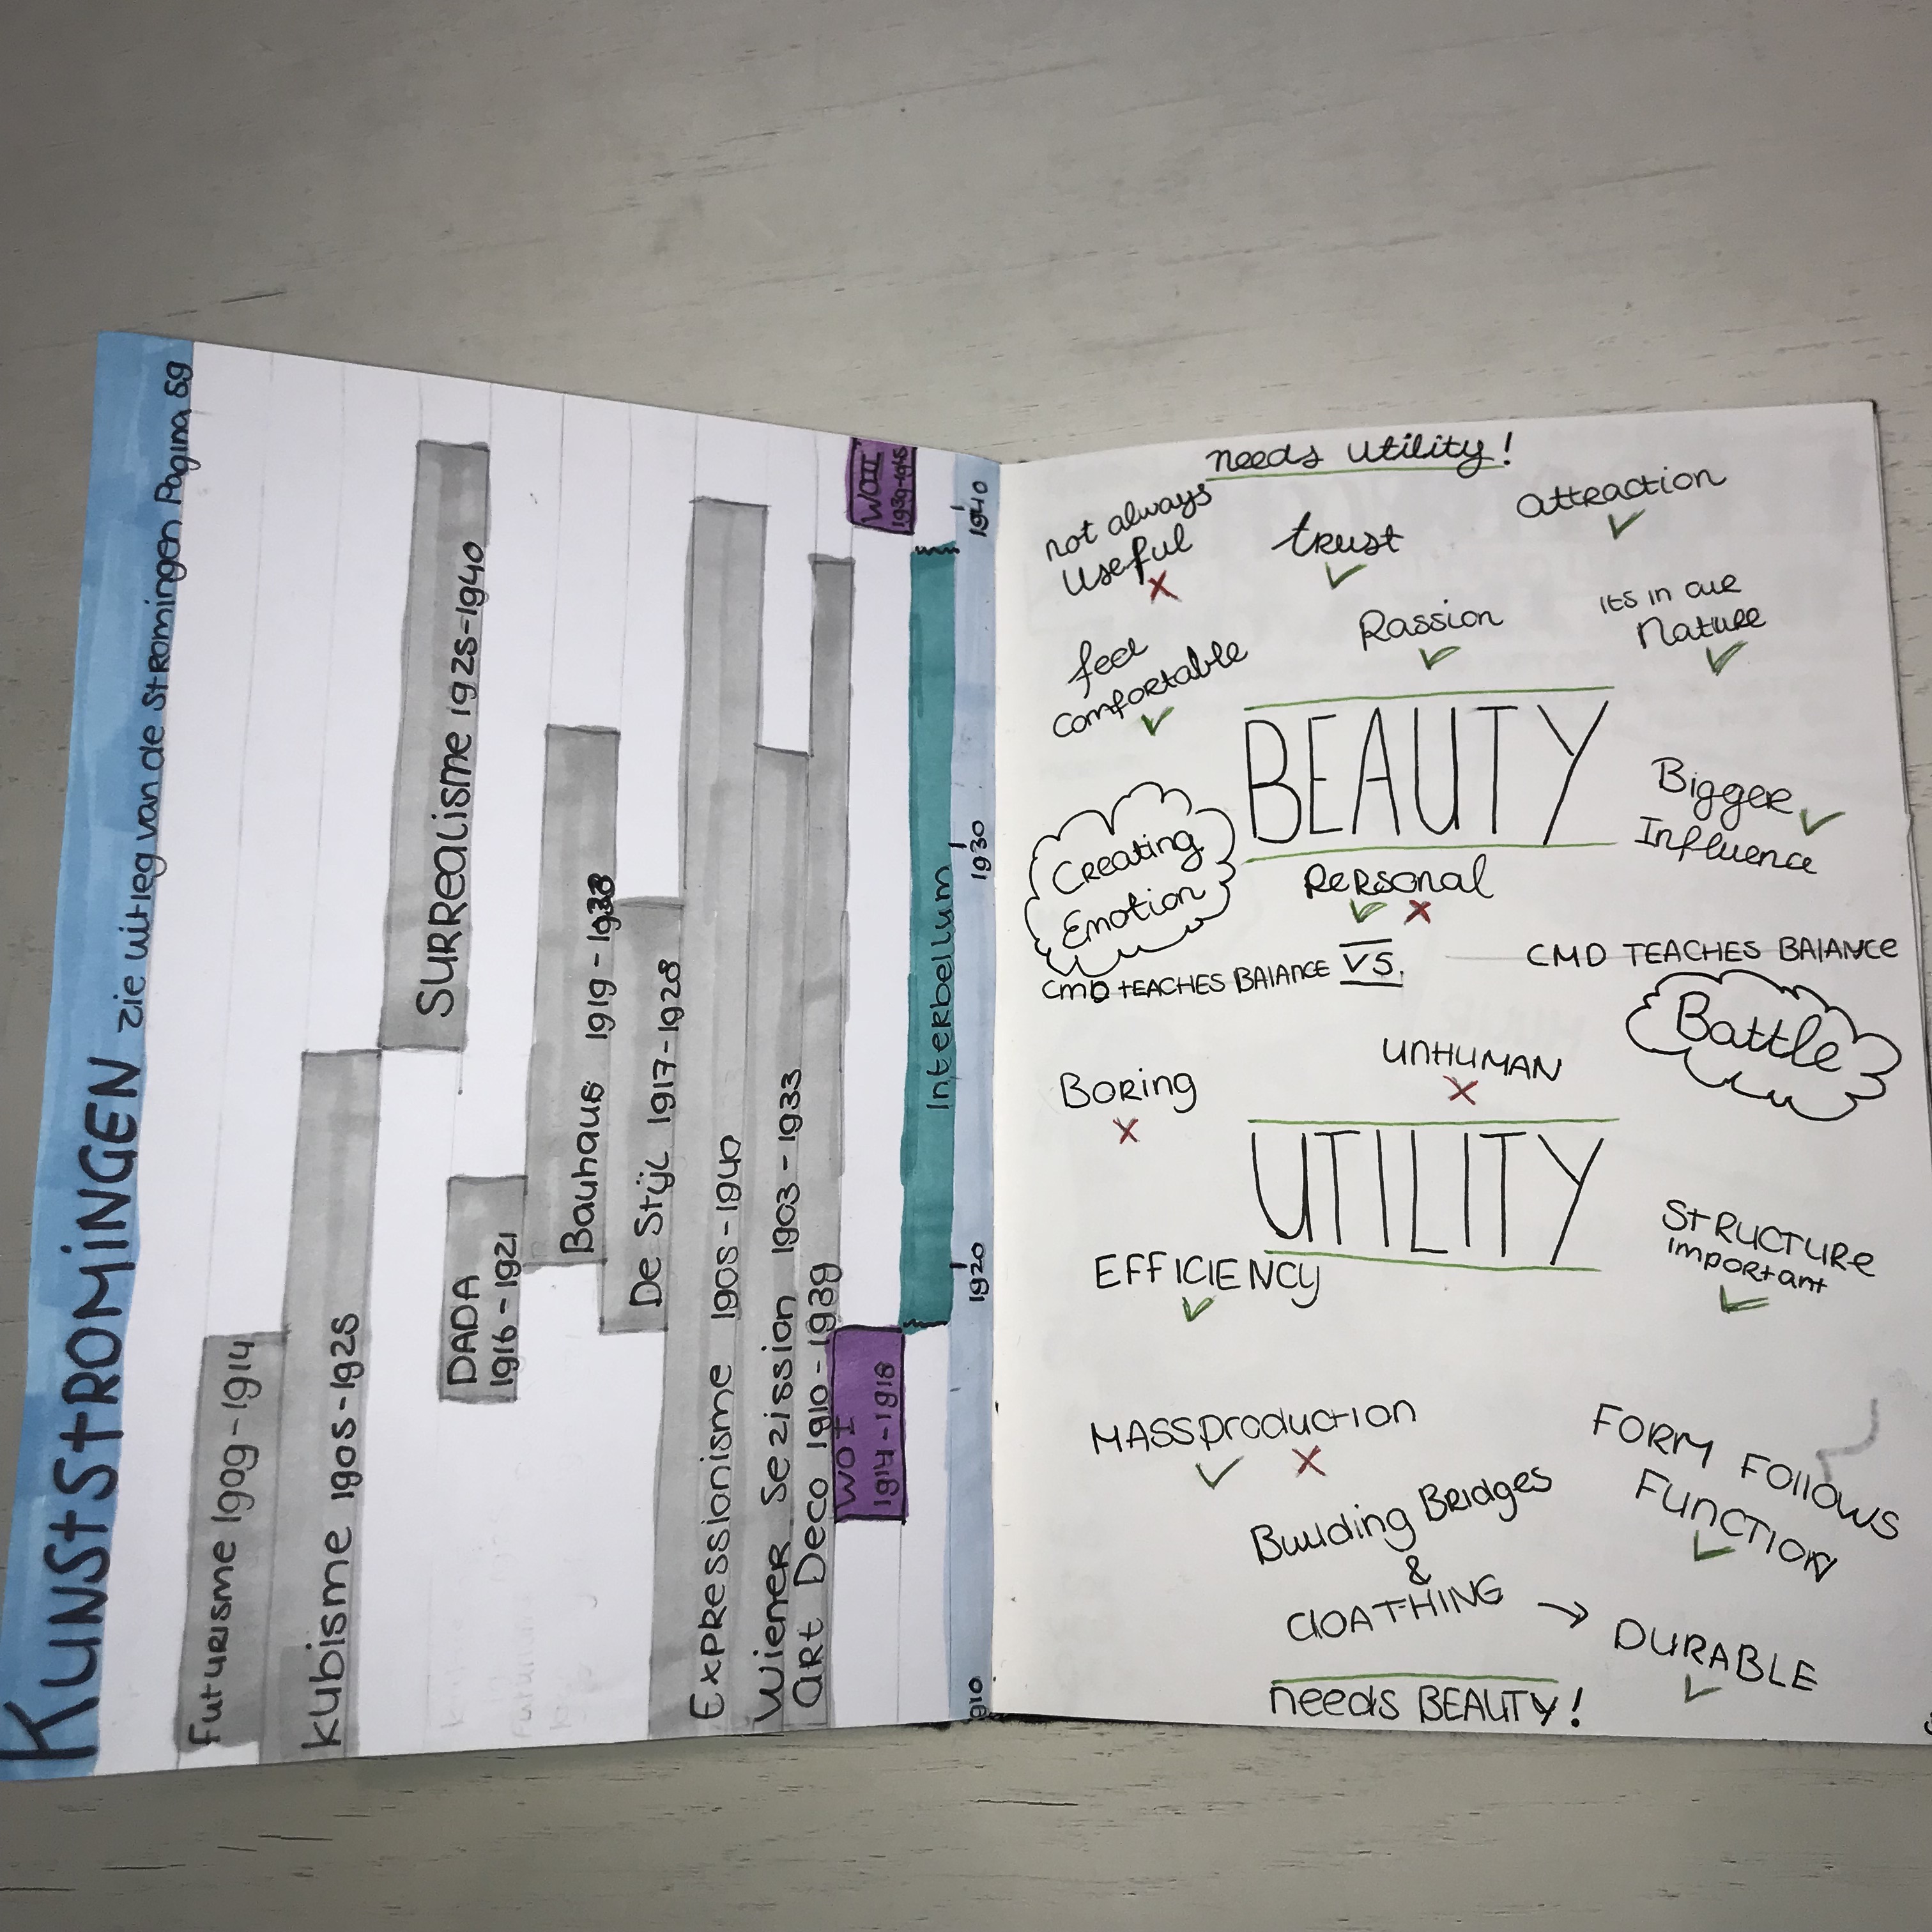 KUNSTSTROMINGEN zie uitleg van de stromingen Pagina 59
Futurisme 1909-1914
Kubisme 1905-1925
Surrealisme 1925-1940
DADA
1916-1921
Bauhaus 1919-1933
De Stijl 1917-1928
Expressionisme 1905-1940
Wiener Sezission 1903-1933
Art Deco 1910-1939
WO I
1914-1918
WO II
1939-1945
Interbellum
1910
1920
1930
1940
needs utility!
not always
useful
trust
attraction
feel
comfortable
Passion
its in our
Nature
BEAUTY
Creating
Emotion
Bigger
Influence
Personal
CMD TEACHES BALANCE VS.
CMD TEACHES BALANCE
Battle
Boring
UNHUMAN
UTILITY
EFFICIENCY
STRUCTURE
important
MASSproduction
FORM FOLLOWS
FUNCTION
Building Bridges
&
CLOATHING → DURABLE
needs BEAUTY!